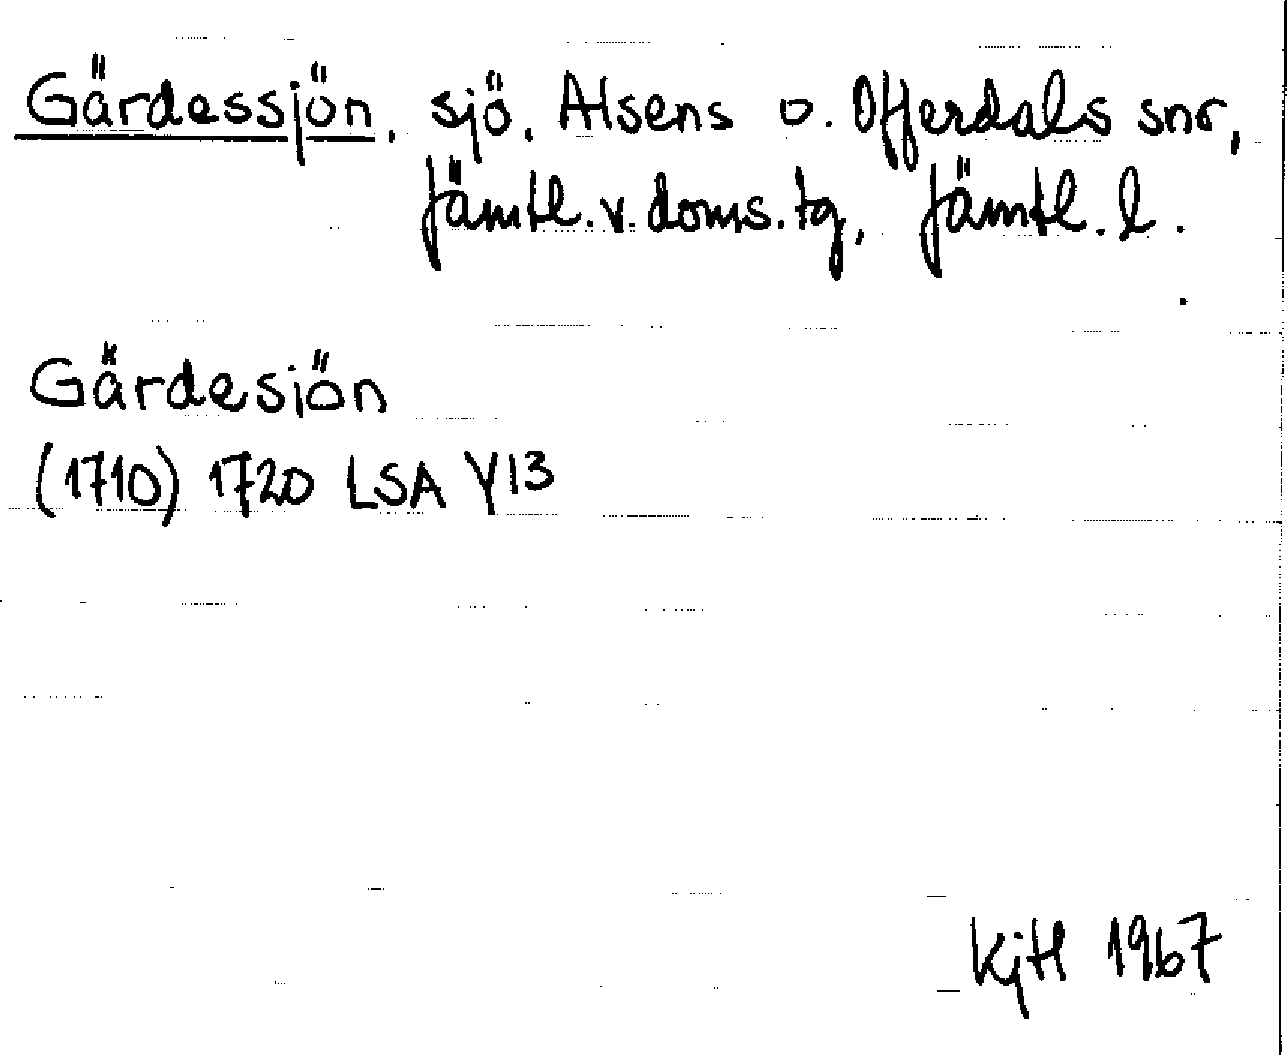 Gärdessjön, sjö, Alsens o. Offerdals snr,
Jämtl. v. doms. tg, Jämtl. l.
Gärdesiön
(1710) 1720 LSA Y13
KjH 1967